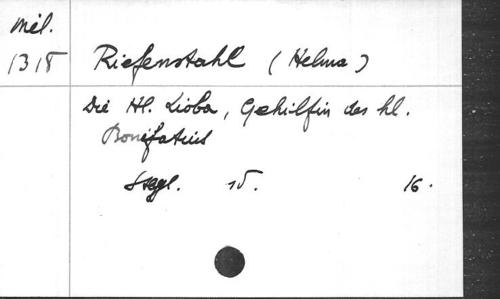 Mél.
1318 Riefenstahl (Helma)
Die Hl. Lioba, Gehilfin des hl.
Bonifatius
15. 16.